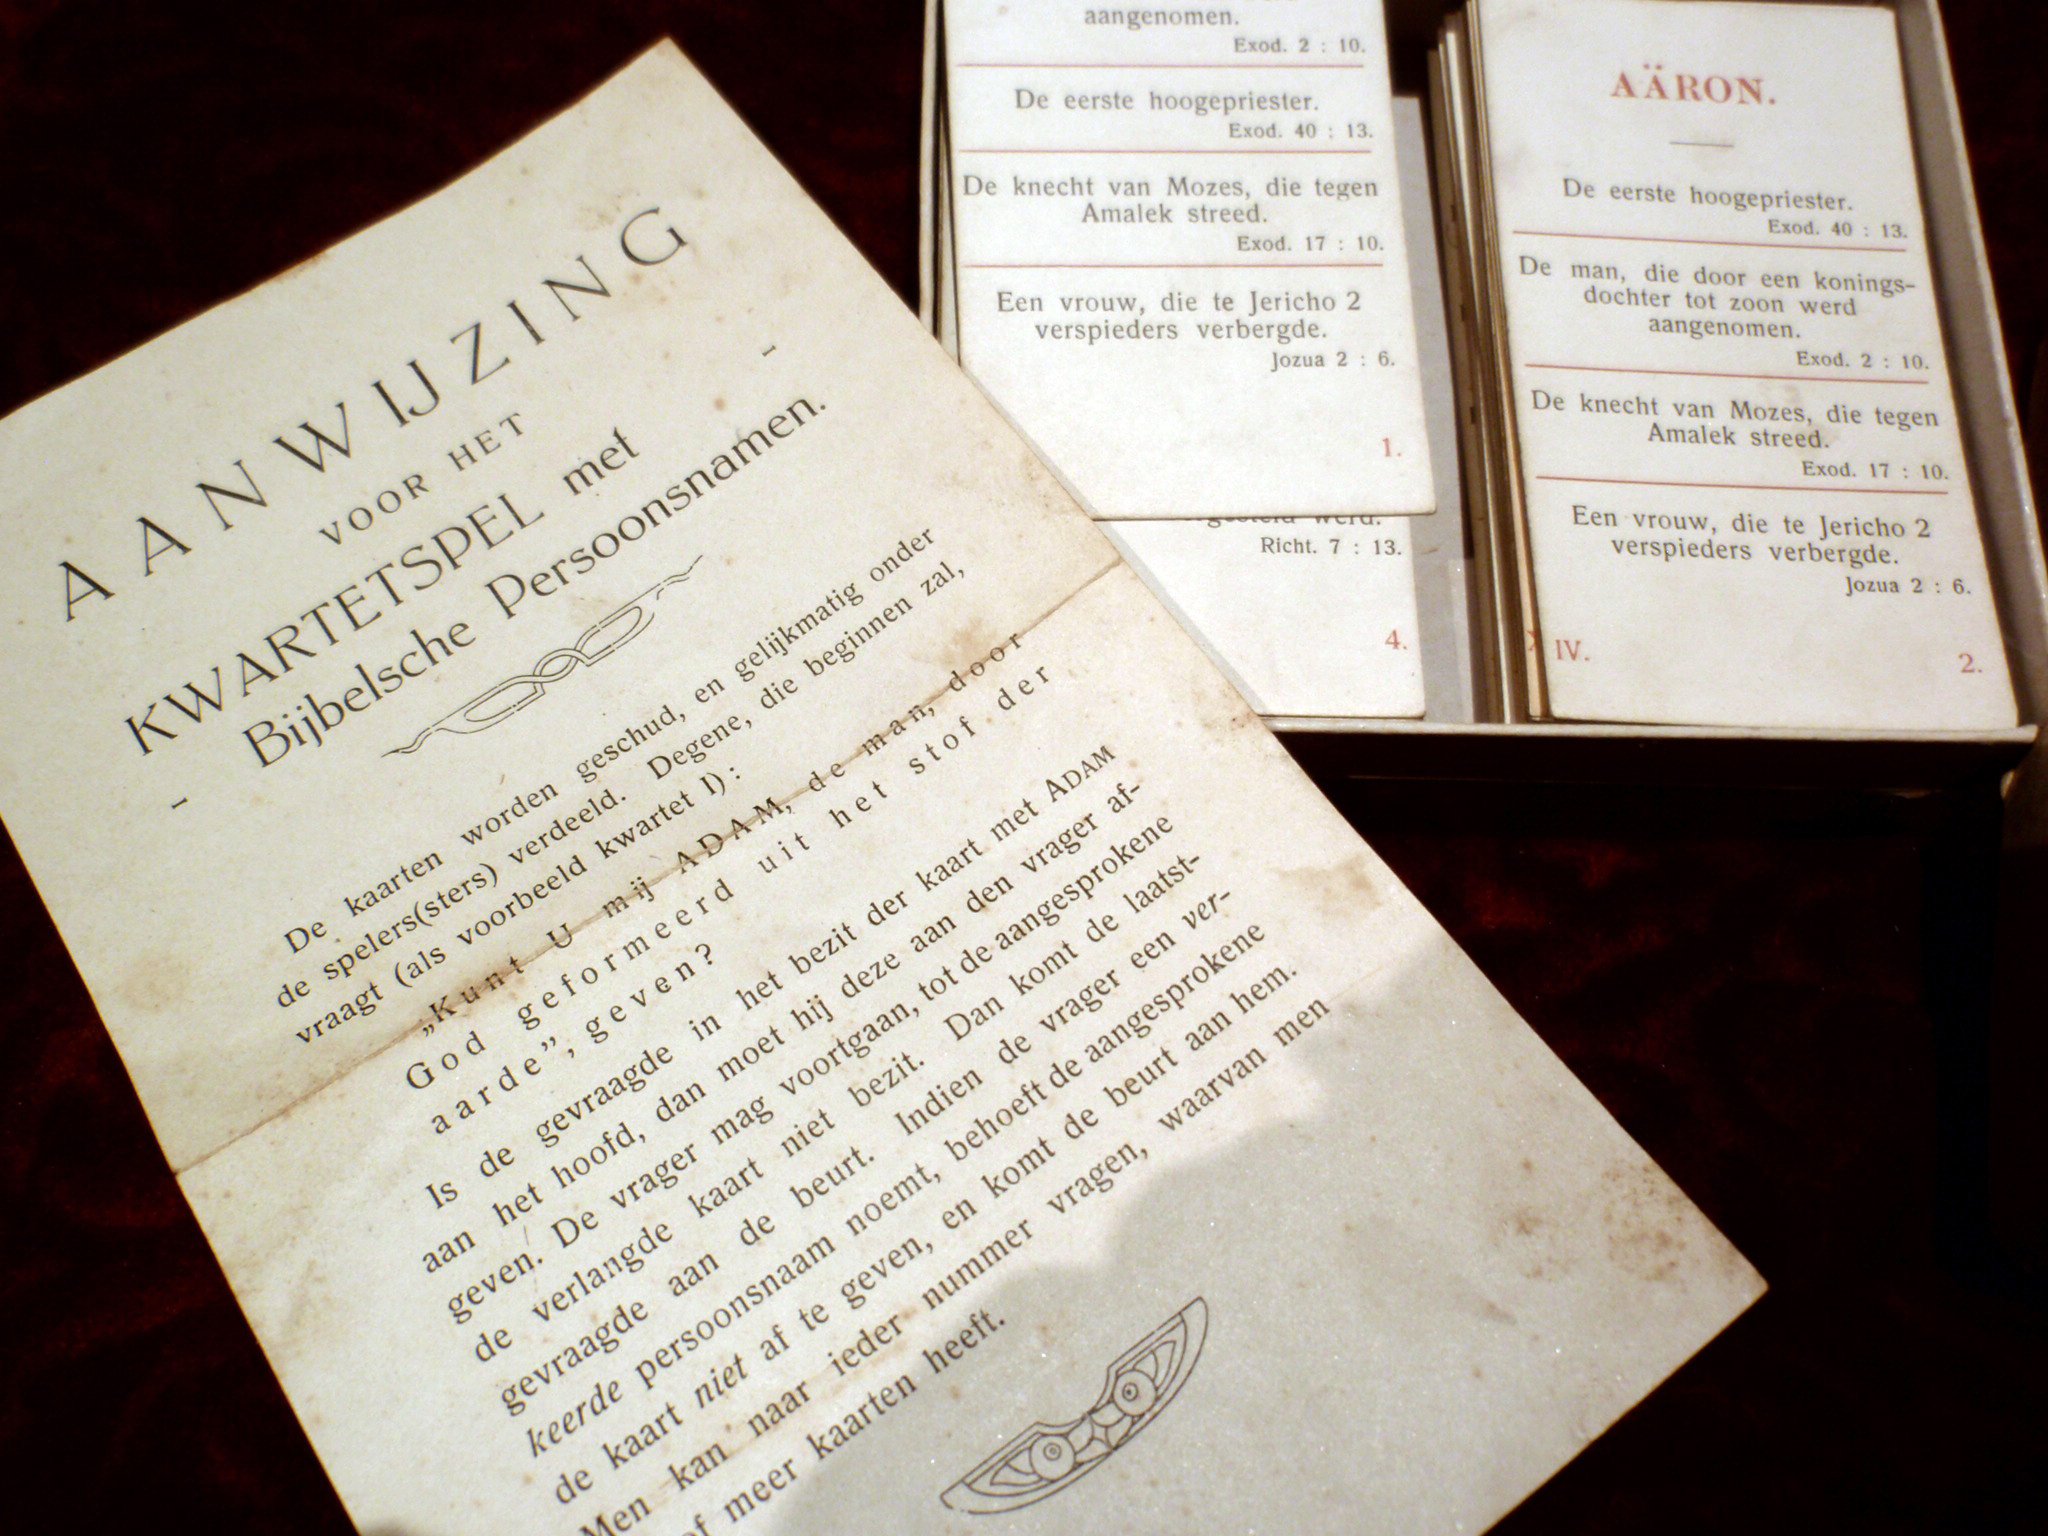 AANWIJZING
VOOR HET
KWARTETSPEL met
- Bijbelsche Persoonsnamen. -
De kaarten worden geschud, en gelijkmatig onder
de spelers(sters) verdeeld. Degene, die beginnen zal,
vraagt (als voorbeeld kwartet I):
„Kunt U mij ADAM, de man, door
God geformeerd uit het stof der
aarde”, geven?
Is de gevraagde in het bezit der kaart met ADAM
aan het hoofd, dan moet hij deze aan den vrager af-
geven. De vrager mag voortgaan, tot de aangesprokene
de verlangde kaart niet bezit. Dan komt de laatst-
gevraagde aan de beurt. Indien de vrager een ver-
keerde persoonsnaam noemt, behoeft de aangesprokene
de kaart niet af te geven, en komt de beurt aan hem.
Men kan naar ieder nummer vragen, waarvan men
of meer kaarten heeft.
aangenomen.
Exod. 2 : 10.
De eerste hoogepriester.
Exod. 40 : 13.
De knecht van Mozes, die tegen
Amalek streed.
Exod. 17 : 10.
Een vrouw, die te Jericho 2
verspieders verbergde.
Jozua 2 : 6.
1.
werd.
Richt. 7 : 13.
4.
AÄRON.
De eerste hoogepriester.
Exod. 40 : 13.
De man, die door een konings-
dochter tot zoon werd
aangenomen.
Exod. 2 : 10.
De knecht van Mozes, die tegen
Amalek streed.
Exod. 17 : 10.
Een vrouw, die te Jericho 2
verspieders verbergde.
Jozua 2 : 6.
IV. 2.